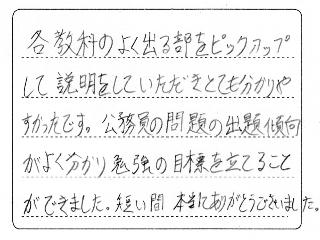 各教科のよく出る部をピックアップ
して説明をしていただきとても分かりや
すかったです。公務員の問題の出題傾向
がよく分かり勉強の目標を立てること
ができました。短い間 本当にありがとうございました。